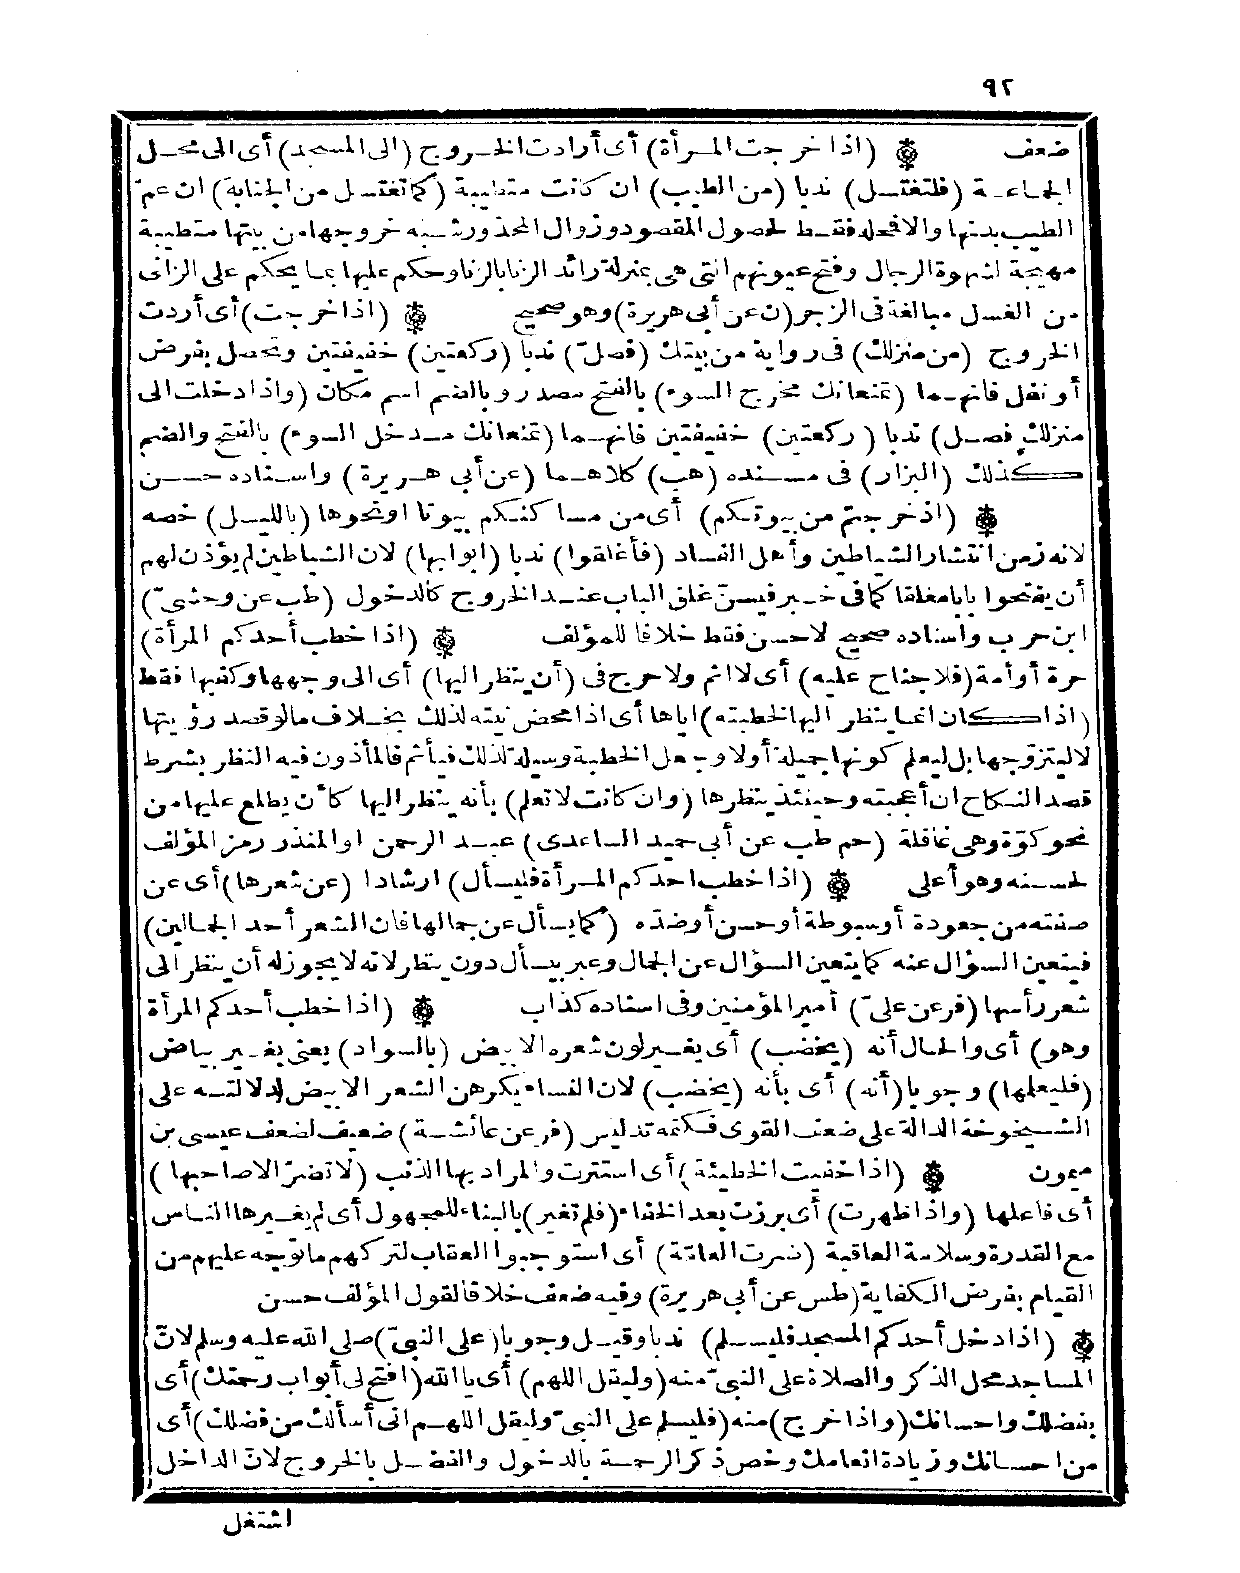 ٩٢
ضعف ۞ (اذا خرجت المرأة) أى أرادت الخروج (الى المسجد) أى الى محل
الجماعة (فلتغتسل) ندبا (من الطيب) ان كانت متطيبة (كما تغتسل من الجنابة) ان عمّ
الطيب بدنها والا فمحله فقط لحصول المقصود وزوال المحذور شبه خروجها من بيتها متطيبة
مهيجة لشهوة الرجال وفتح عيونهم التى هى بمنزلة رائد الزنا بالزنا وحكم عليها بما يحكم على الزانى
من الغسل مبالغة فى الزجر (ن عن أبى هريرة) وهو صحيح ۞ (اذا خرجت) أى أردت
الخروج (من منزلك) فى رواية من بيتك (فصلّ) ندبا (ركعتين) خفيفتين وتحصل بفرض
أو نفل فانهما (تمنعانك مخرج السوء) بالفتح مصدر وبالضم اسم مكان (واذا دخلت الى
منزلك فصل) ندبا (ركعتين) خفيفتين فانهما (تمنعانك مدخل السوء) بالفتح والضم
كذلك (البزار) فى مسنده (هب) كلاهما (عن أبى هريرة) واسناده حسن
۞ (اذ خرجتم من بيوتكم) أى من مساكنكم بيوتا او نحوها (بالليل) خصه
لانه زمن انتشار الشياطين وأهل الفساد (فأغلقوا) ندبا (ابوابها) لان الشياطين لم يؤذن لهم
أن يفتحوا بابا مغلقا كما فى خبر فيسنّ غلق الباب عند الخروج كالدخول (طب عن وحشىّ)
ابن حرب واسناده صحيح لا حسن فقط خلافا للمؤلف ۞ (اذا خطب أحدكم المرأة)
حرة أو أمة (فلا جناح عليه) أى لا اثم ولا حرج فى (أن ينظر اليها) أى الى وجهها وكفيها فقط
(اذا كان انما ينظر اليها لخطبته) اياها أى اذا محض نيته لذلك بخلاف ما لو قصد رؤيتها
لا ليتزوجها بل ليعلم كونها جميلة أولا وجعل الخطبة وسيلة لذلك فيأثم فالمأذون فيه النظر بشرط
قصد النكاح ان أعجبته وحينئذ ينظرها (وان كانت لا تعلم) بأنه ينظر اليها كأن يطلع عليها من
نحو كوّة وهى غافلة (حم طب عن أبى حميد الساعدى) عبد الرحمن او المنذر رمز المؤلف
لحسنه وهو أعلى ۞ (اذا خطب احدكم المرأة فليسأل) ارشادا (عن شعرها) أى عن
صفته من جعودة أو سبوطة أو حسن أو ضدّه (كما يسأل عن جمالها فان الشعر أحد الجمالين)
فيتعين السؤال عنه كما يتعين السؤال عن الجمال وعبر بيسأل دون ينظر لانه لا يجوز له أن ينظر الى
شعر رأسها (فر عن علىّ) أمير المؤمنين وفى اسناده كذاب ۞ (اذا خطب أحدكم المرأة
وهو) أى والحال أنه (يخضب) أى يغير لون شعره الابيض (بالسواد) يعنى بغير بياض
(فليعلمها) وجوبا (أنه) أى بأنه (يخضب) لان النساء يكرهن الشعر الابيض لدلالته على
الشيخوخة الدالة على ضعف القوى فكتمه تدليس (فر عن عائشة) ضعيف لضعف عيسى بن
ميمون ۞ (اذا خفيت الخطيئة) أى استترت والمراد بها الذنب (لا تضرّ الا صاحبها)
أى فاعلها (واذا ظهرت) أى برزت بعد الخفاء (فلم تغير) بالبناء للمجهول أى لم يغيرها الناس
مع القدرة وسلامة العاقبة (ضرت العامّة) أى استوجبوا العقاب لتركهم ما توجه عليهم من
القيام بفرض الكفاية (طس عن أبى هريرة) وفيه ضعف خلافا لقول المؤلف حسن
۞ (اذا دخل أحدكم المسجد فليسلم) ندبا وقيل وجوبا (على النبىّ) صلى الله عليه وسلم لانّ
المساجد محل الذكر والصلاة على النبىّ منه (وليقل اللهم) أى يا الله (افتح لى أبواب رحمتك) أى
بفضلك واحسانك (واذا خرج) منه (فليسلم على النبىّ وليقل اللهم انى أسألك من فضلك) أى
من احسانك وزيادة انعامك وخص ذكر الرحمة بالدخول والفضل بالخروج لانّ الداخل
اشتغل